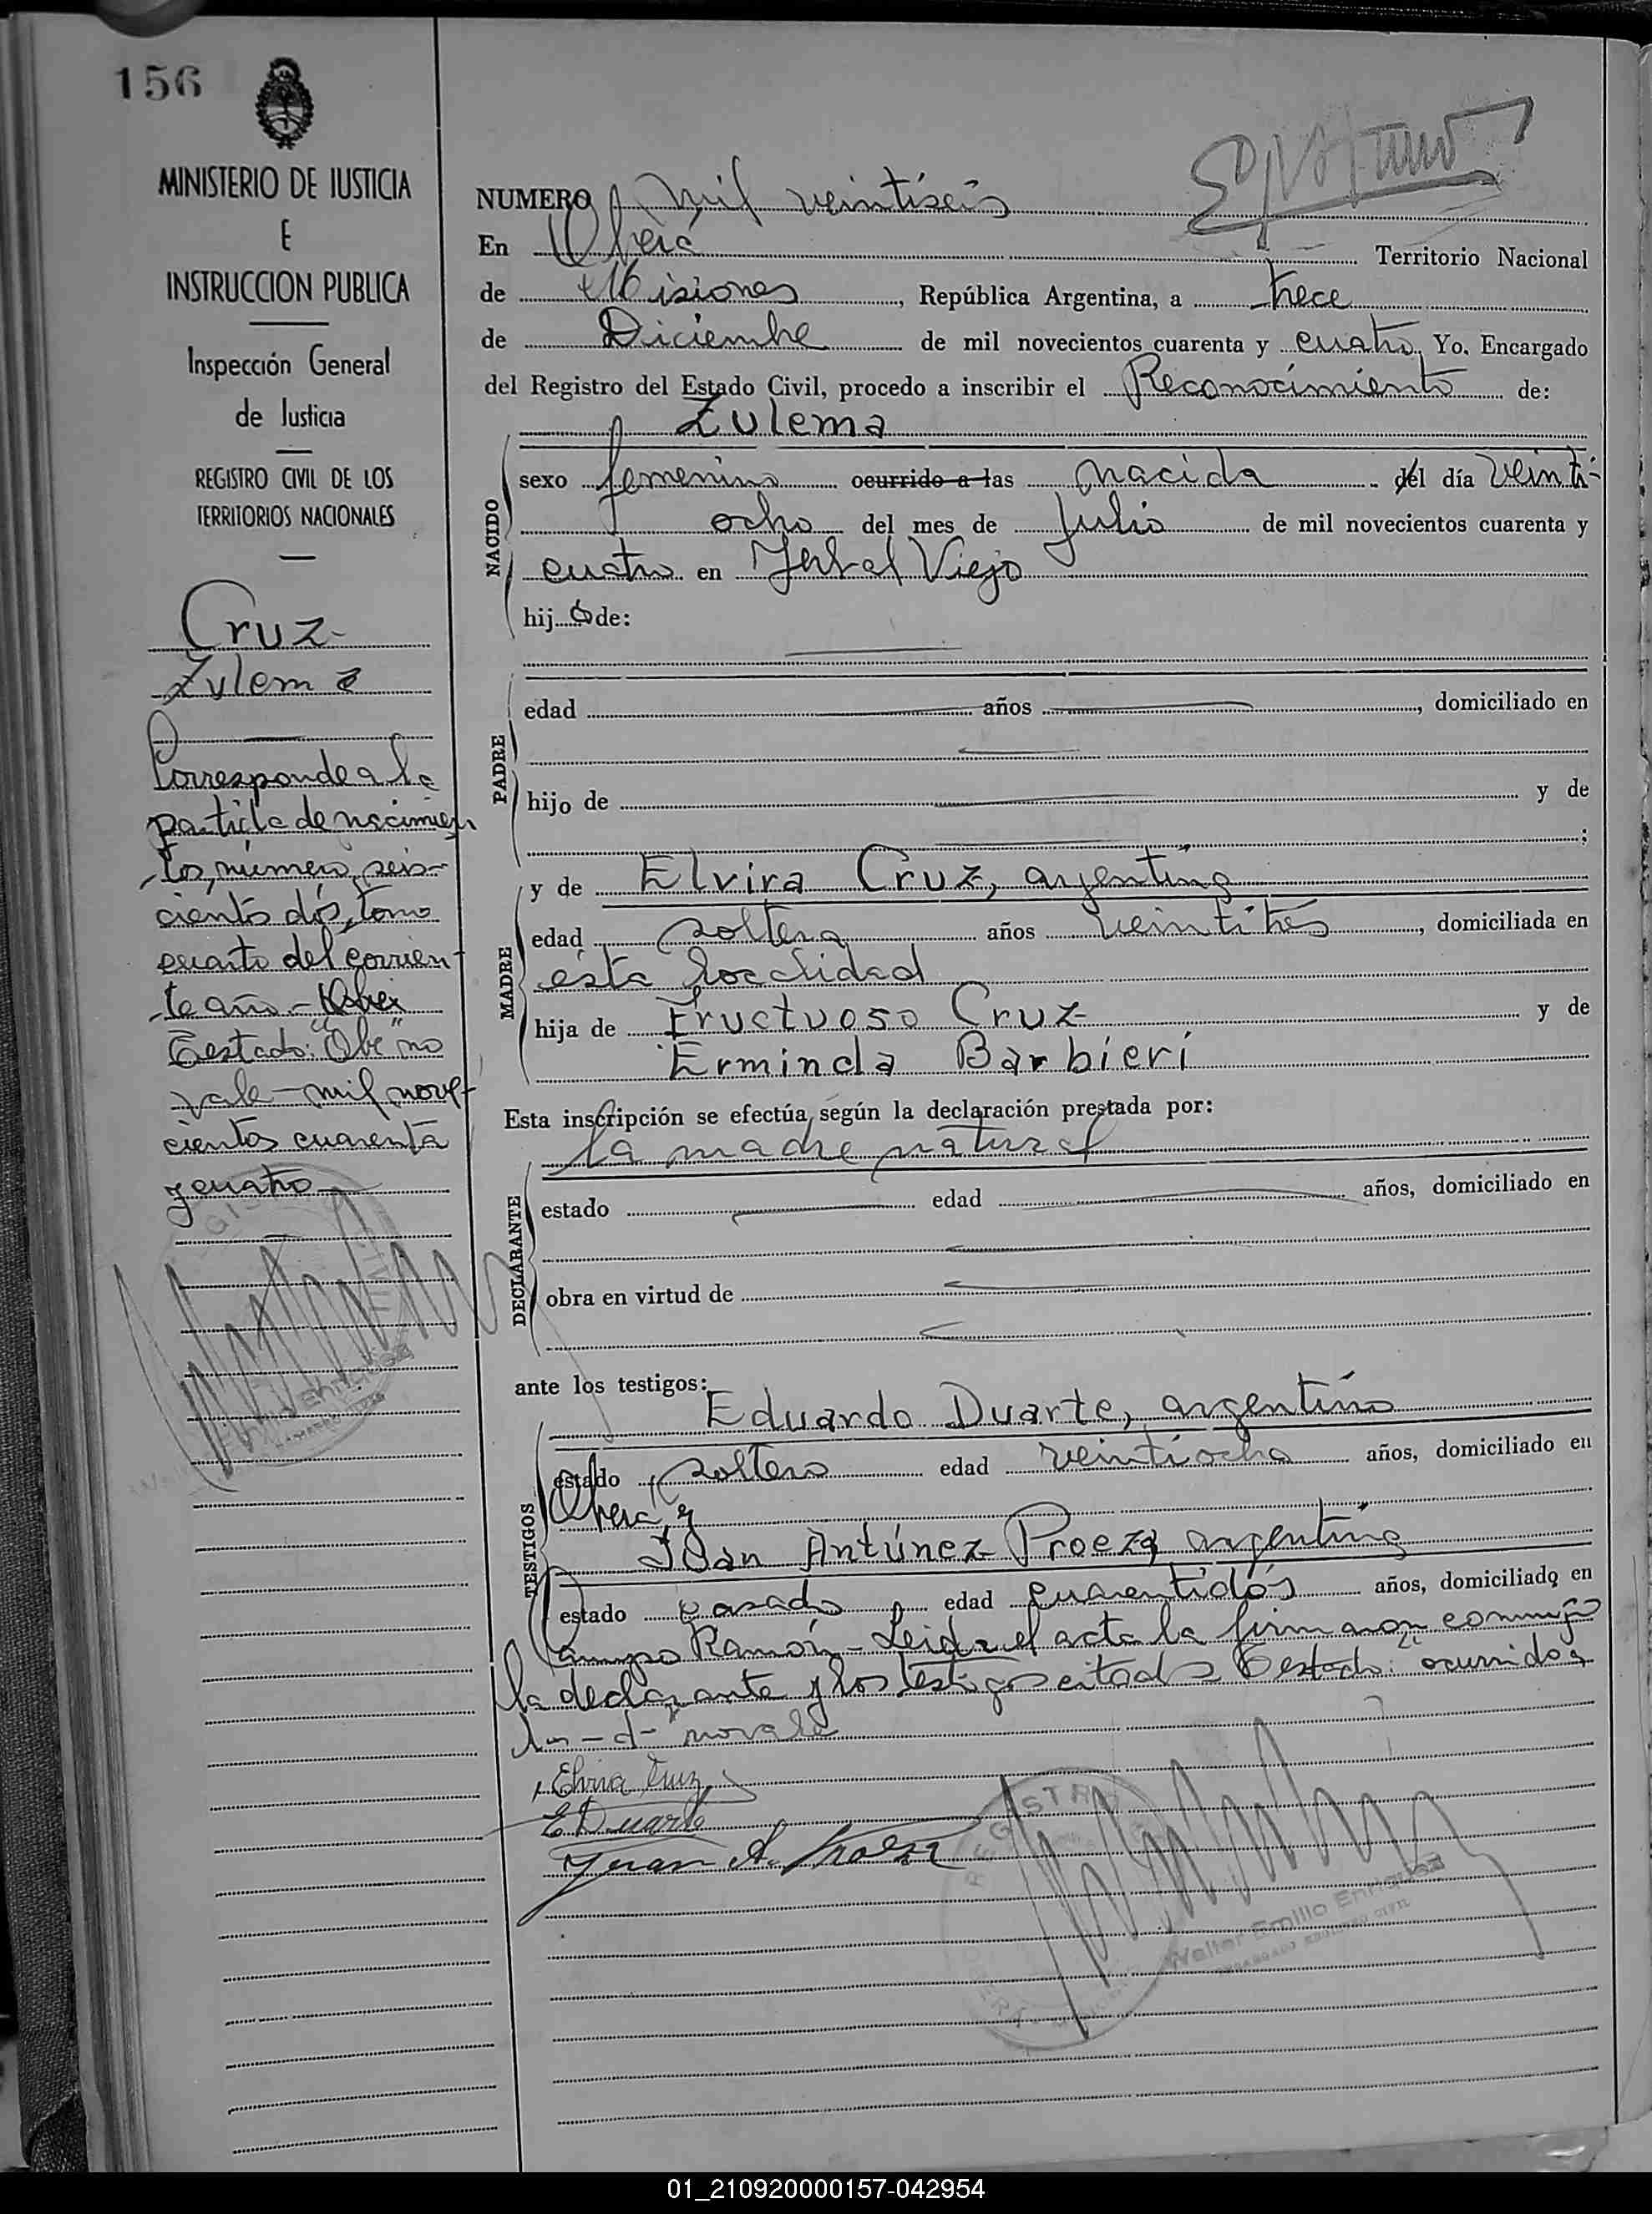 156
MINISTERIO DE JUSTICIA
E
INSTRUCCION PUBLICA
Inspección General
de Justicia
REGISTRO CIVIL DE LOS
TERRITORIOS NACIONALES
Cruz-
Zulema
Corresponde a la
partida de nacimien
to, número seis-
cientos dós, tomo
cuarto del corrien-
te año-
Testado: "Obe" no
vale - mil nove-
cientos cuarenta
y cuatro
NUMERO mil veintiseis
En Oberá Territorio Nacional
de Misiones, República Argentina, a trece
de Diciembre de mil novecientos cuarenta y cuatro, Yo. Encargado
del Registro del Estado Civil, procedo a inscribir el Reconocimiento de:
Zulema
NACIDO
sexo femenino ocurrido a las nacida del día veinti-
ocho del mes de Julio de mil novecientos cuarenta y
cuatro en Yerbal Viejo
hij a de:
PADRE
edad años , domiciliado en
hijo de y de
;
MADRE
y de Elvira Cruz, argentina
edad soltera años veintitrés, domiciliada en
ésta localidad
hija de Fructuoso Cruz y de
Erminda Barbieri
Esta inscripción se efectúa según la declaración prestada por:
la madre natural
DECLARANTE
estado edad años, domiciliado en
obra en virtud de
ante los testigos:
TESTIGOS
Eduardo Duarte, argentino
estado soltero edad veintiocho años, domiciliado en
Oberá y
Juan Antúnez Proeza argentino
estado casado edad cuarentidós años, domiciliado en
Campo Ramón - Leida el acta la firmaron conmigo
la declarante y los testigos citados Testado: "ocurrido a
las - d - no vale
Elvira Cruz
E Duarte
Juan A. Proeza
Walter Emilio Enriquez
ENCARGADO REGISTRO CIVIL
01_210920000157-042954